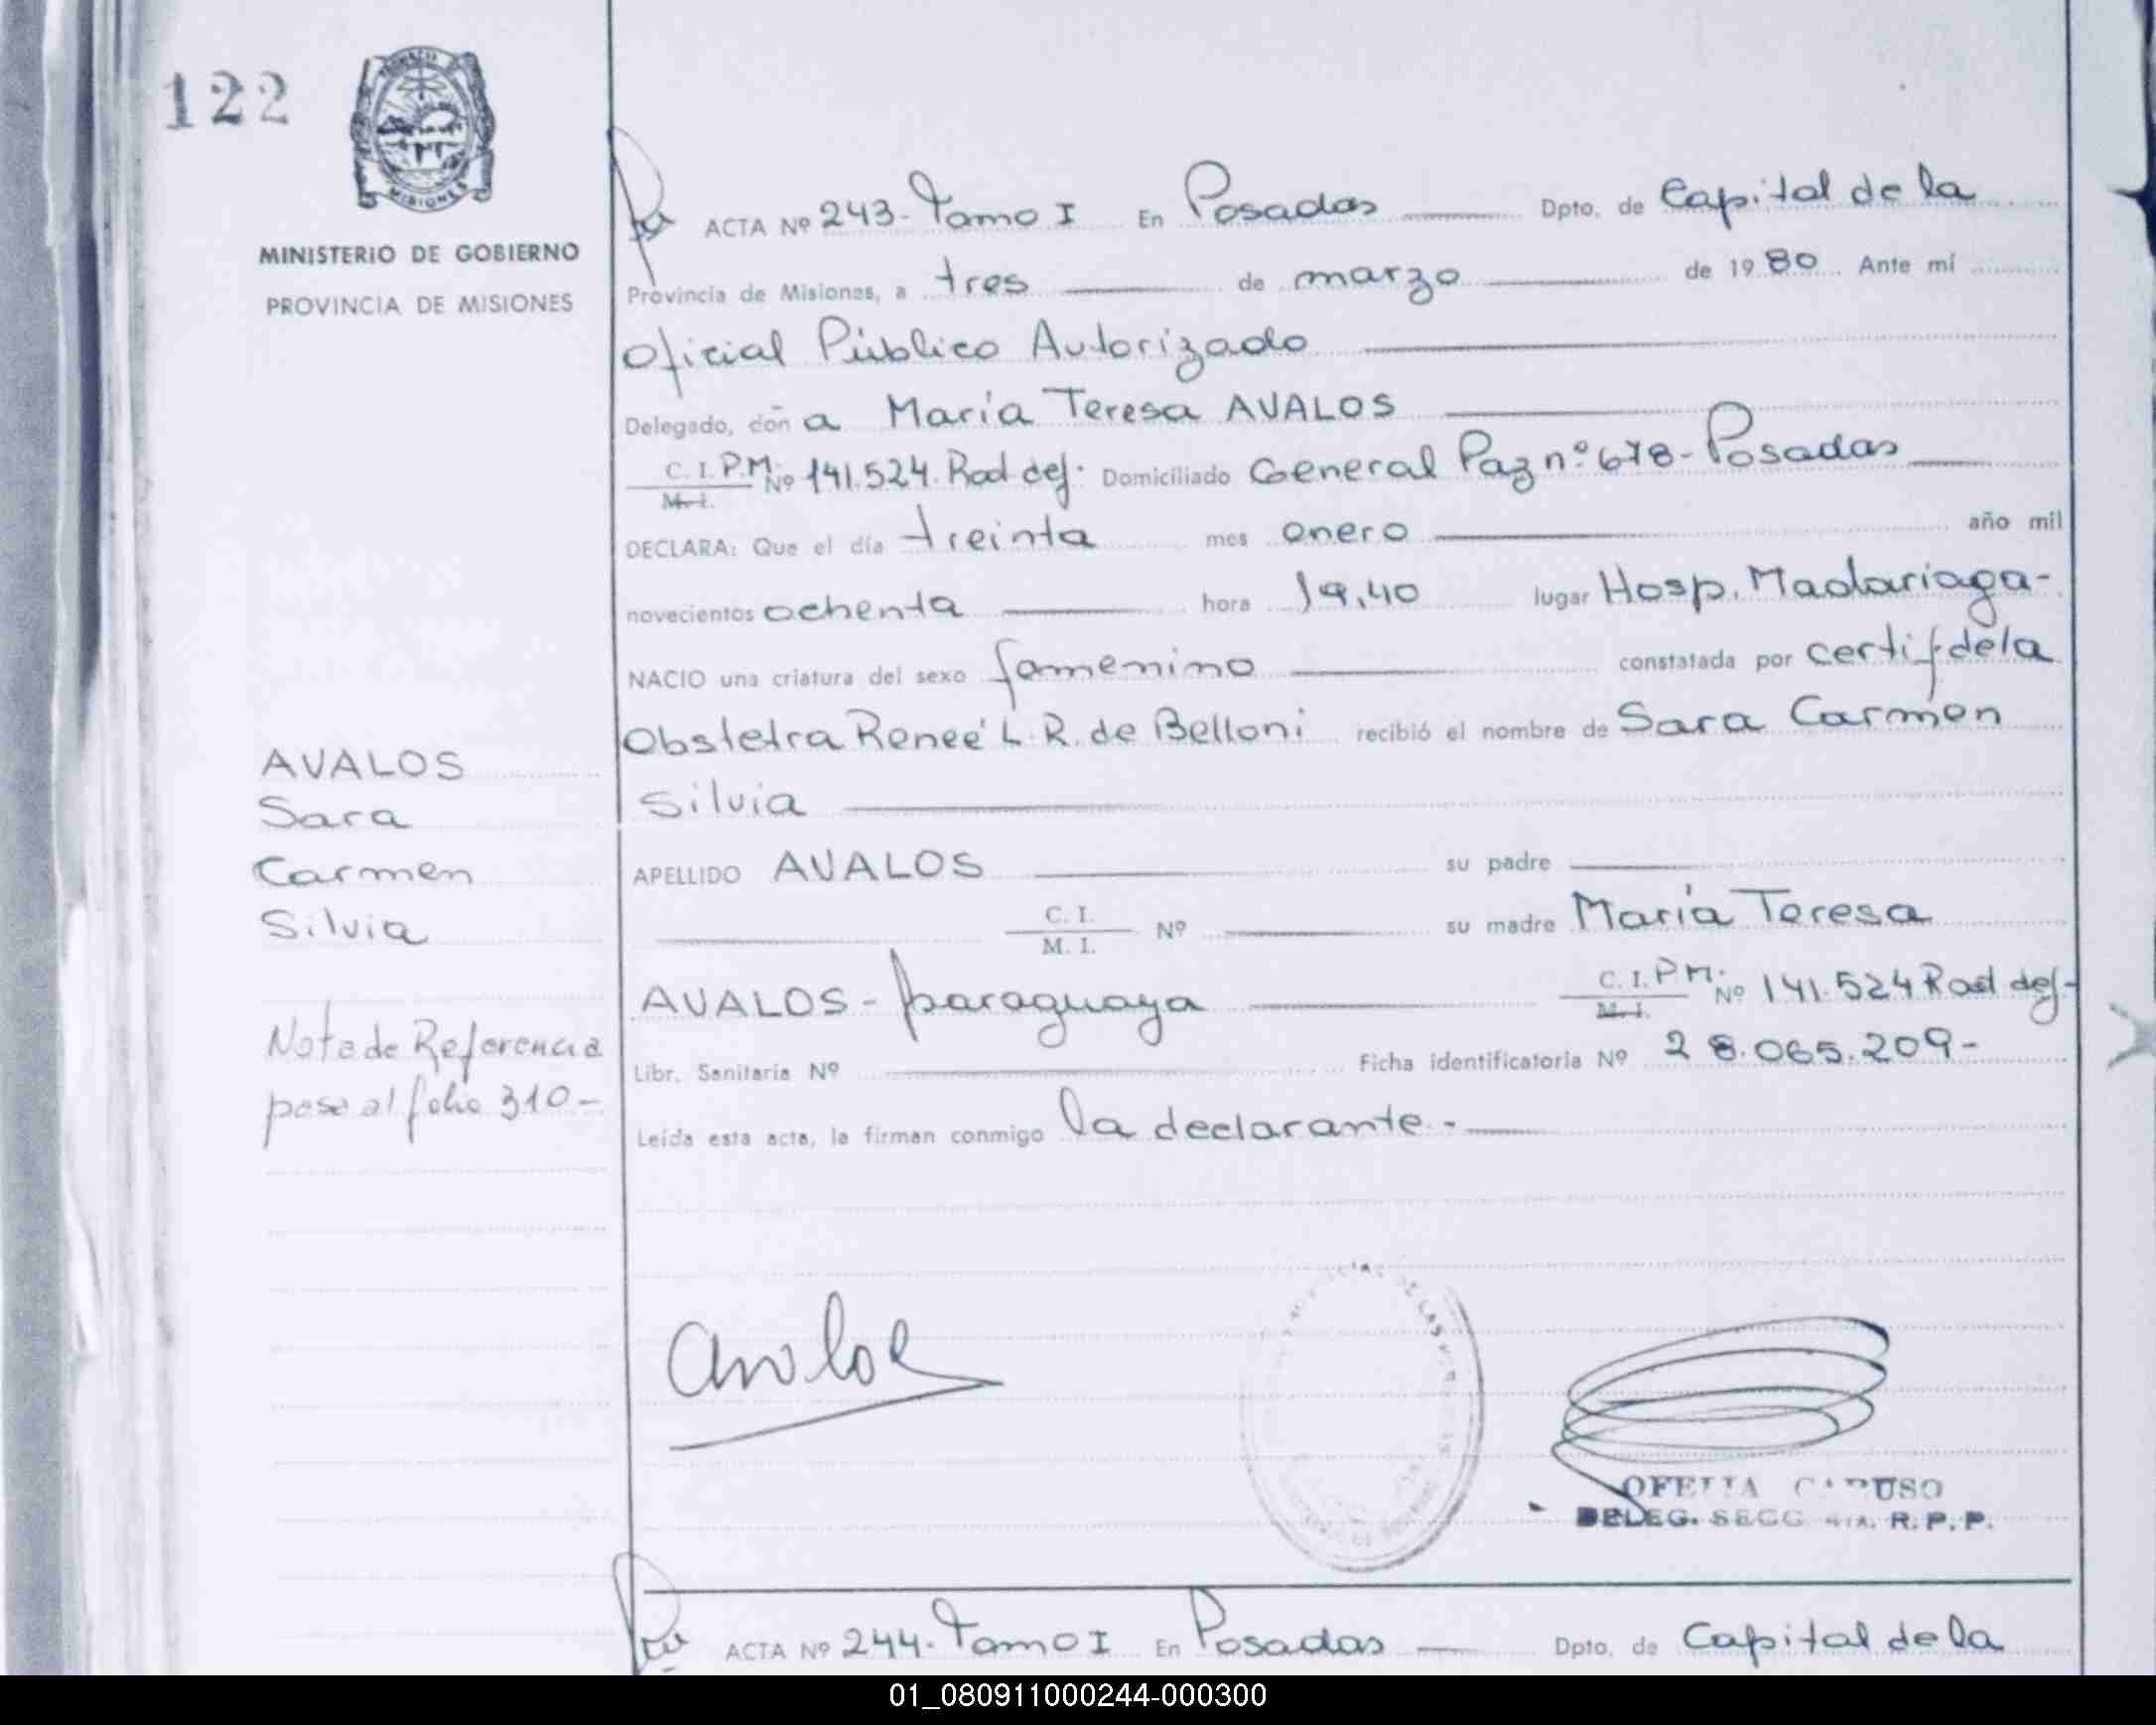 122
MISIONES
MINISTERIO DE GOBIERNO
PROVINCIA DE MISIONES
ACTA Nº 243- Tomo I En Posadas Dpto. de Capital de la
Provincia de Misiones, a tres de marzo de 1980. Ante mí
Oficial Público Autorizado
Delegado, don a María Teresa AVALOS
C. I. P.M. Nº 141.524. Rad def. Domiciliado General Paz nº 678- Posadas
M. I.
DECLARA: Que el día treinta mes enero año mil
novecientos ochenta hora 19,40 lugar Hosp. Madariaga-
NACIO una criatura del sexo femenino constatada por certif de la
Obstetra Reneé L. R. de Belloni recibió el nombre de Sara Carmen
Silvia
AVALOS
Sara
Carmen
Silvia
APELLIDO AVALOS su padre
C. I. Nº su madre María Teresa
M. I.
AVALOS- paraguaya C. I. P.M. Nº 141.524 Rad def-
M. I.
Nota de Referencia
pasa al folio 310-
Libr. Sanitaria Nº Ficha identificatoria Nº 28.065.209-
Leída esta acta, la firman conmigo la declarante.-
Avalos
DE LAS
CARUSO
DELEG. SECC R.P.P.
ACTA Nº 244- Tomo I En Posadas Dpto. de Capital de la
01_080911000244-000300